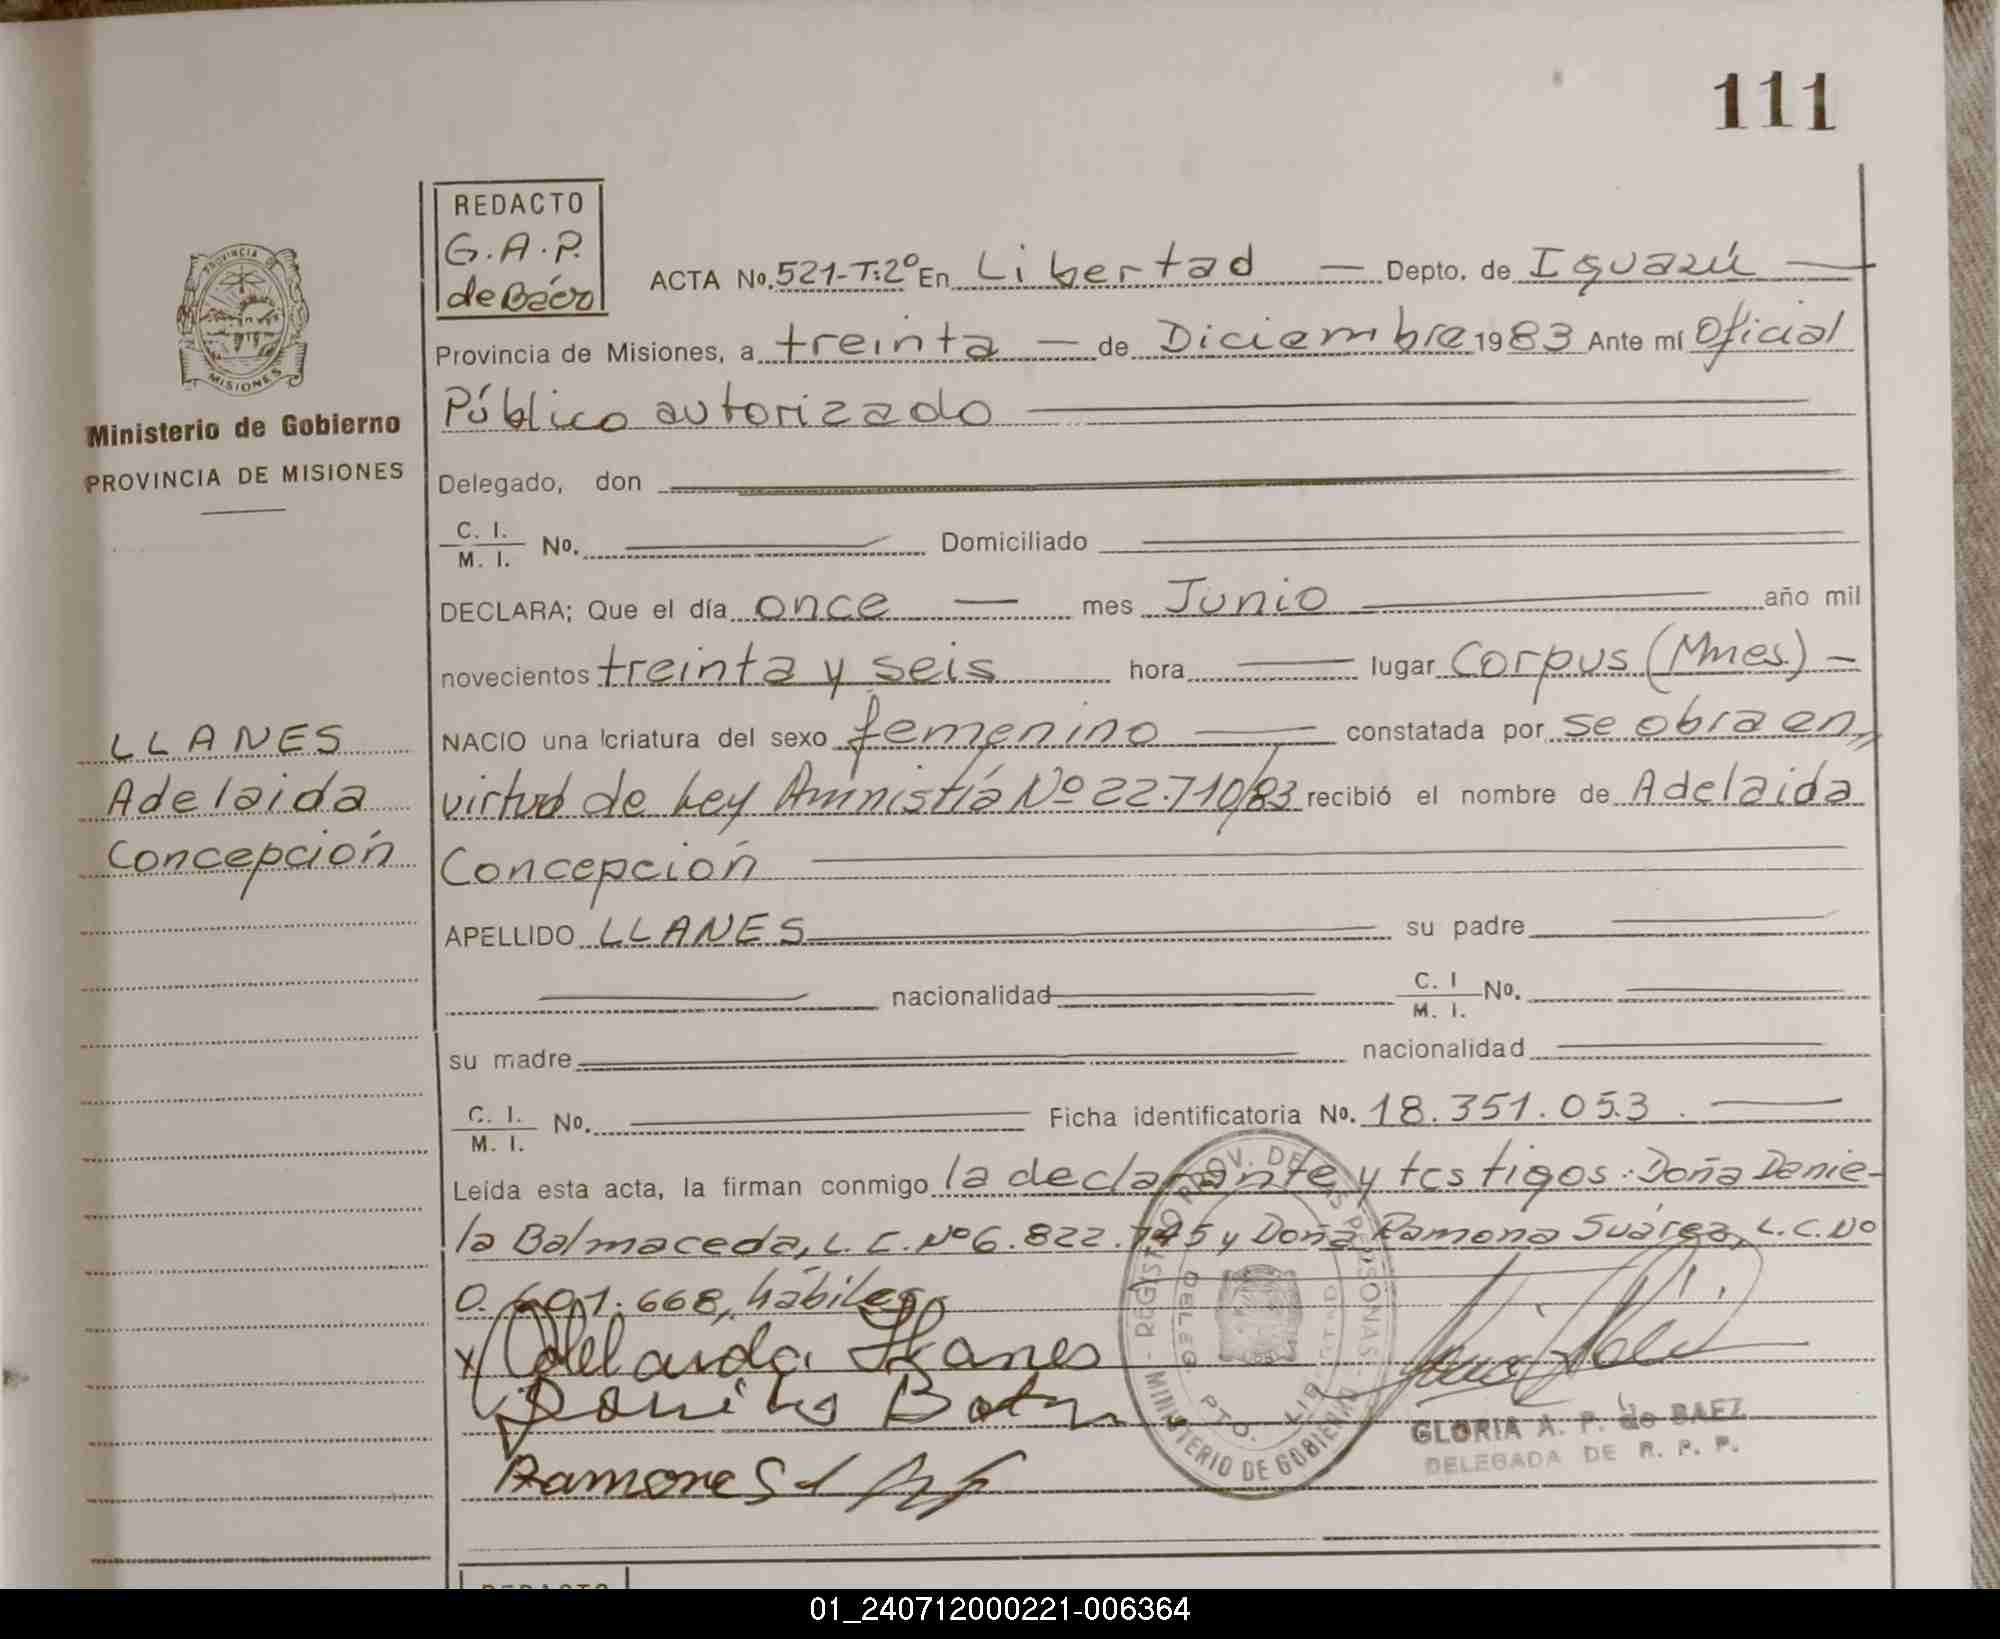 111
REDACTO
G.A.P.
de Báez
PROVINCIA DE
MISIONES
Ministerio de Gobierno
PROVINCIA DE MISIONES
ACTA No. 521-T:2º En Libertad — Depto. de Iguazú —
Provincia de Misiones, a treinta — de Diciembre 1983 Ante mí Oficial
Público autorizado
Delegado, don
C. I.
M. I. No. Domiciliado
DECLARA; Que el día once — mes Junio — año mil
novecientos treinta y seis hora — lugar Corpus (Mnes.) —
LLANES
Adelaida
Concepción
NACIO una criatura del sexo femenino — constatada por se obra en
virtud de Ley Amnistía Nº 22.710/83 recibió el nombre de Adelaida
Concepción
APELLIDO LLANES su padre
nacionalidad C. I
M. I. No.
su madre nacionalidad
C. I.
M. I. No. Ficha identificatoria No. 18.351.053. —
Leída esta acta, la firman conmigo la declarante y testigos: Doña Danie-
la Balmaceda, L.C. Nº 6.822.745 y Doña Ramona Suárez, L.C. Nº
0.601.668, hábiles
x Adelaida Llanes
Ramona S
REGISTRO PROV. DE LAS PERSONAS - MINISTERIO DE GOBIERNO
DELEG. PTO. LIBERTAD
GLORIA A. P. de BAEZ
DELEGADA DE R. P. P.
REDACTO
01_240712000221-006364